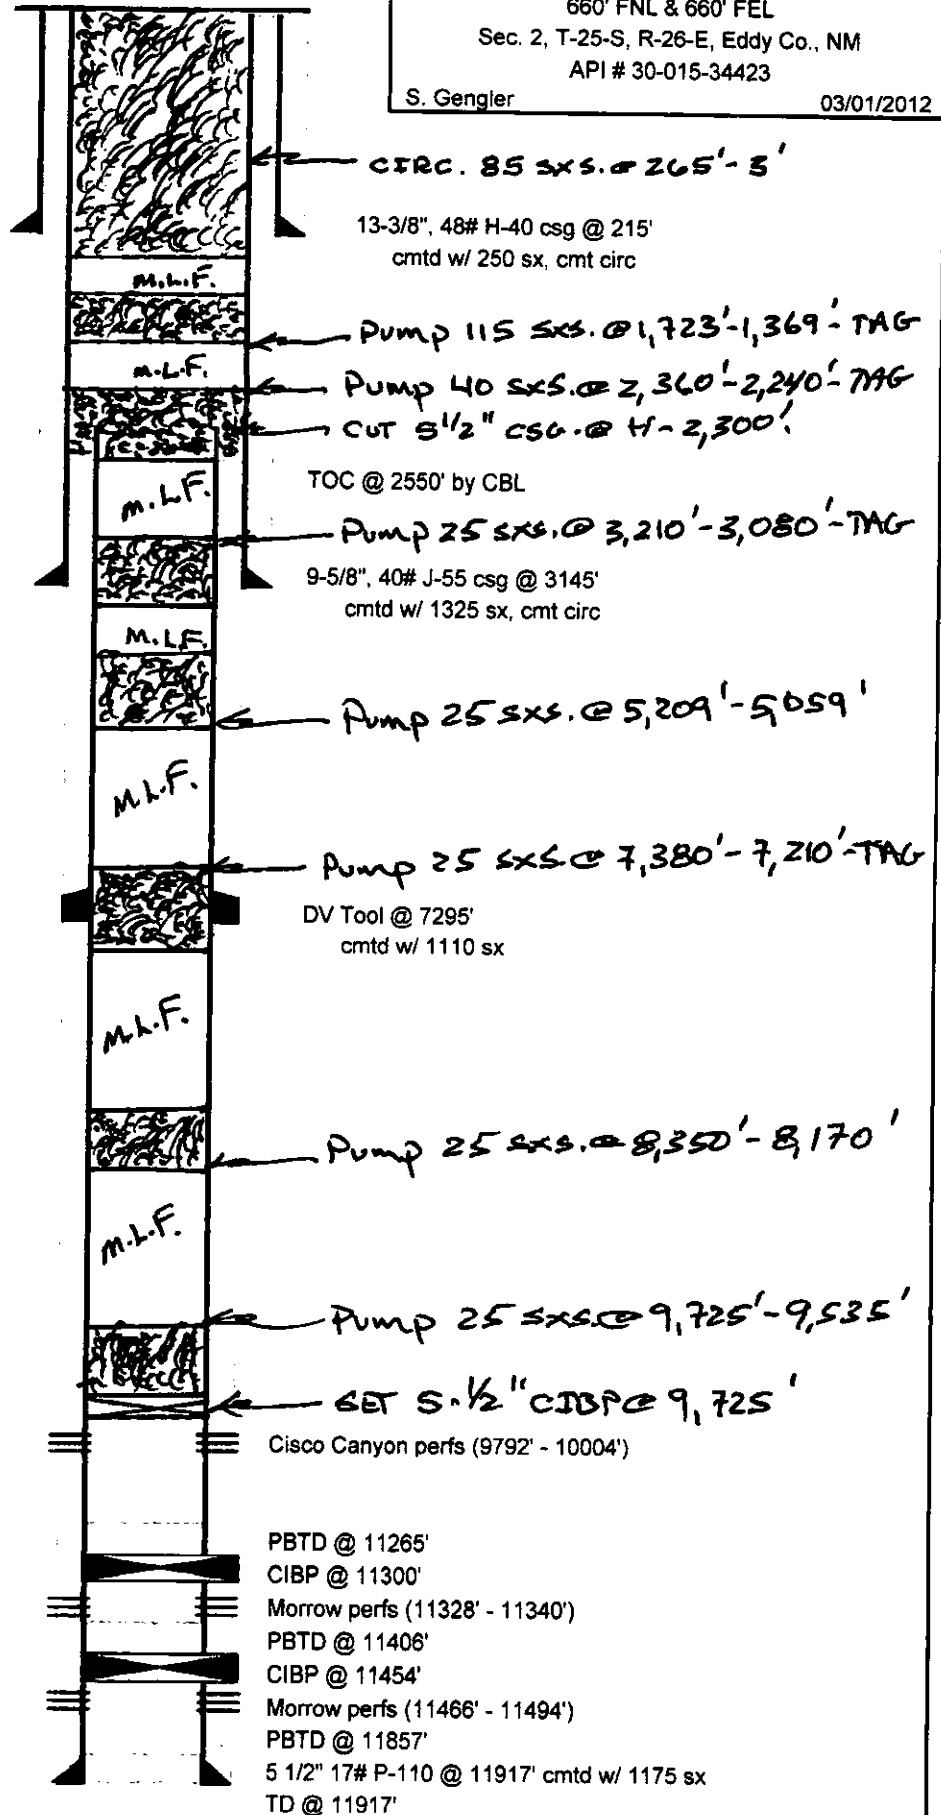 660' FNL & 660' FEL
Sec. 2, T-25-S, R-26-E, Eddy Co., NM
API # 30-015-34423
S. Gengler 03/01/2012
CIRC. 85 SXS. @ 265'-3'
13-3/8", 48# H-40 csg @ 215'
cmtd w/ 250 sx, cmt circ
M.L.F.
Pump 115 SXS. @ 1,723'-1,369'-TAG
M.L.F.
Pump 40 SXS. @ 2,360'-2,240'-TAG
CUT 5 1/2" CSG. @ +/- 2,300'.
TOC @ 2550' by CBL
M.L.F.
Pump 25 SXS. @ 3,210'-3,080'-TAG
9-5/8", 40# J-55 csg @ 3145'
cmtd w/ 1325 sx, cmt circ
M.L.F.
Pump 25 SXS. @ 5,209'-5,059'
M.L.F.
Pump 25 SXS @ 7,380'-7,210'-TAG
DV Tool @ 7295'
cmtd w/ 1110 sx
M.L.F.
Pump 25 SXS. @ 8,350'-8,170'
M.L.F.
Pump 25 SXS @ 9,725'-9,535'
SET 5-1/2" CIBP @ 9,725'
Cisco Canyon perfs (9792' - 10004')
PBTD @ 11265'
CIBP @ 11300'
Morrow perfs (11328' - 11340')
PBTD @ 11406'
CIBP @ 11454'
Morrow perfs (11466' - 11494')
PBTD @ 11857'
5 1/2" 17# P-110 @ 11917' cmtd w/ 1175 sx
TD @ 11917'